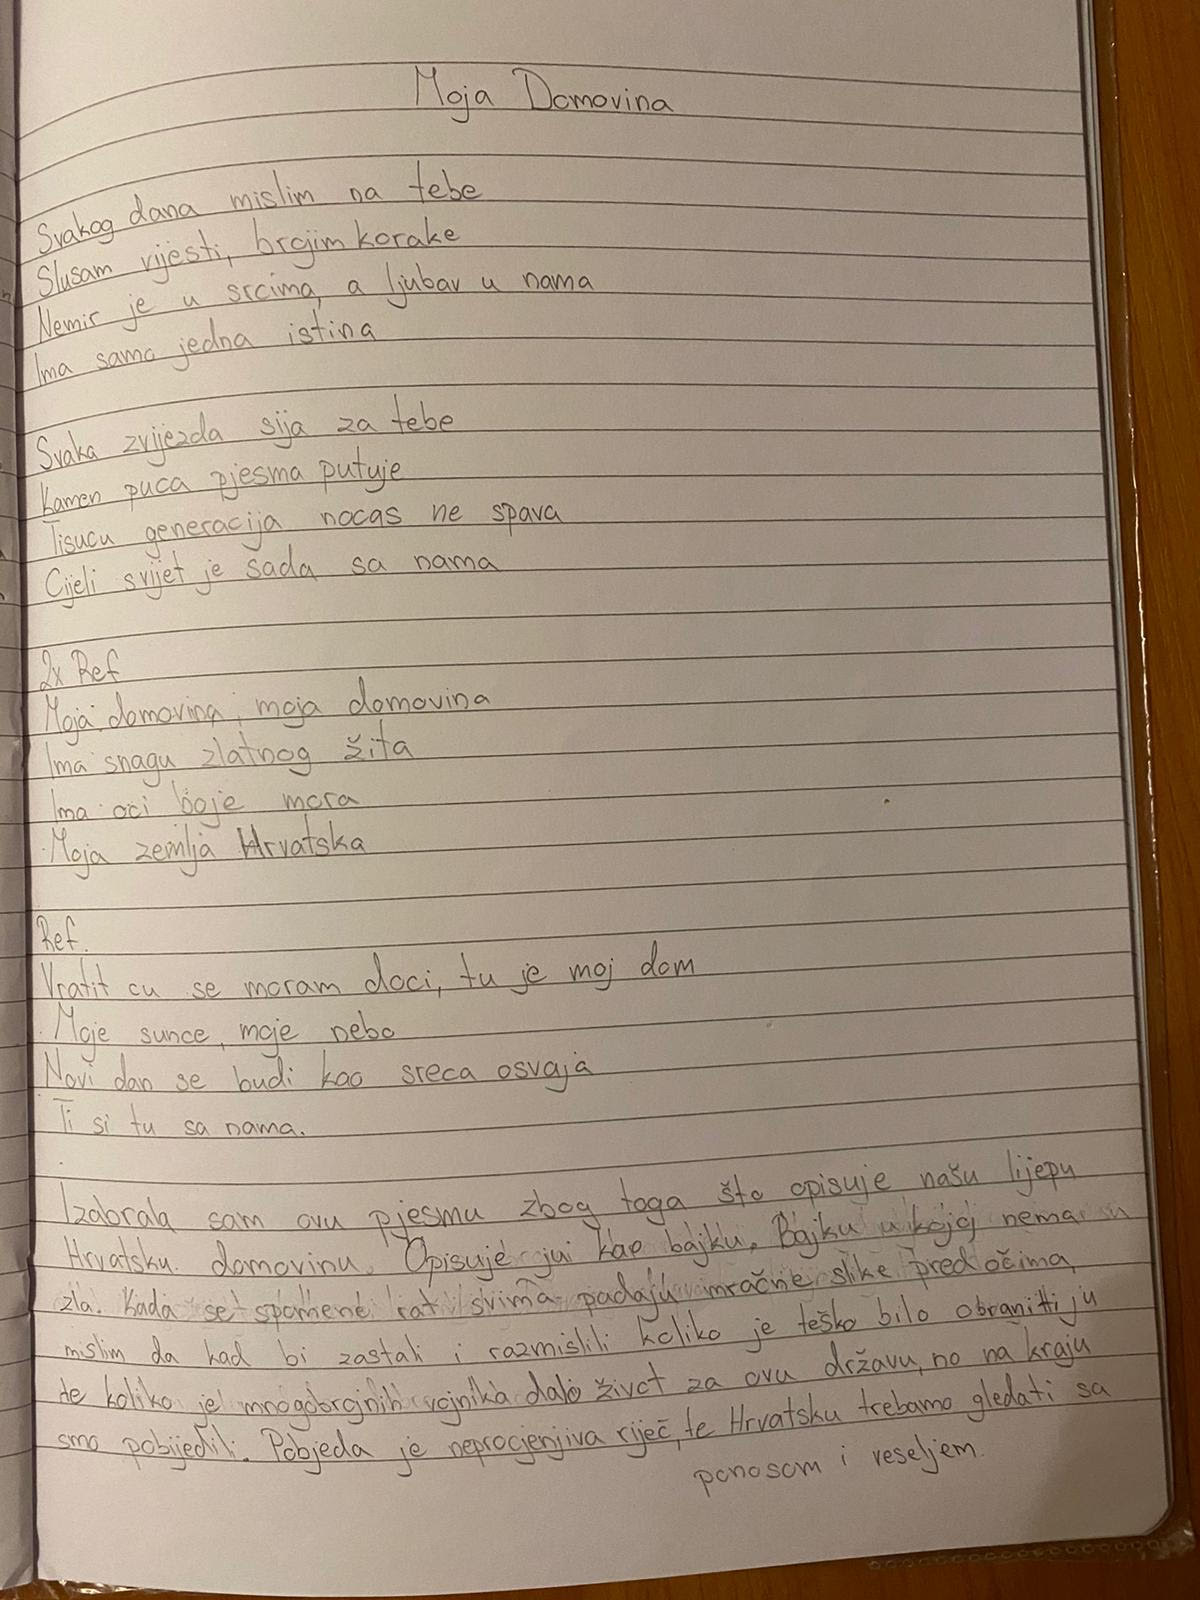 Moja Domovina
Svakog dana mislim na tebe
Slusam vijesti, brojim korake
Nemir je u srcima, a ljubav u nama
Ima samo jedna istina
Svaka zvijezda sija za tebe
Kamen puca pjesma putuje
Tisucu generacija nocas ne spava
Cijeli svijet je sada sa nama
2x Ref
Moja domovina, moja domovina
Ima snagu zlatnog žita
Ima oci boje mora
Moja zemlja Hrvatska
Ref.
Vratit cu se moram doci, tu je moj dom
Moje sunce, moje nebo
Novi dan se budi kao sreca osvaja
Ti si tu sa nama.
Izabrala sam ovu pjesmu zbog toga što opisuje našu lijepu
Hrvatsku domovinu. Opisuje jui kao bajku. Bajku u kojoj nema
zla. Kada se spomene rat svima padaju mračne slike pred očima,
mislim da kad bi zastali i razmislili koliko je teško bilo obraniti ju
te koliko je mnogobrojnih vojnika dalo život za ovu državu, no na kraju
smo pobijedili. Pobjeda je neprocjenjiva riječ, te Hrvatsku trebamo gledati sa
ponosom i veseljem.